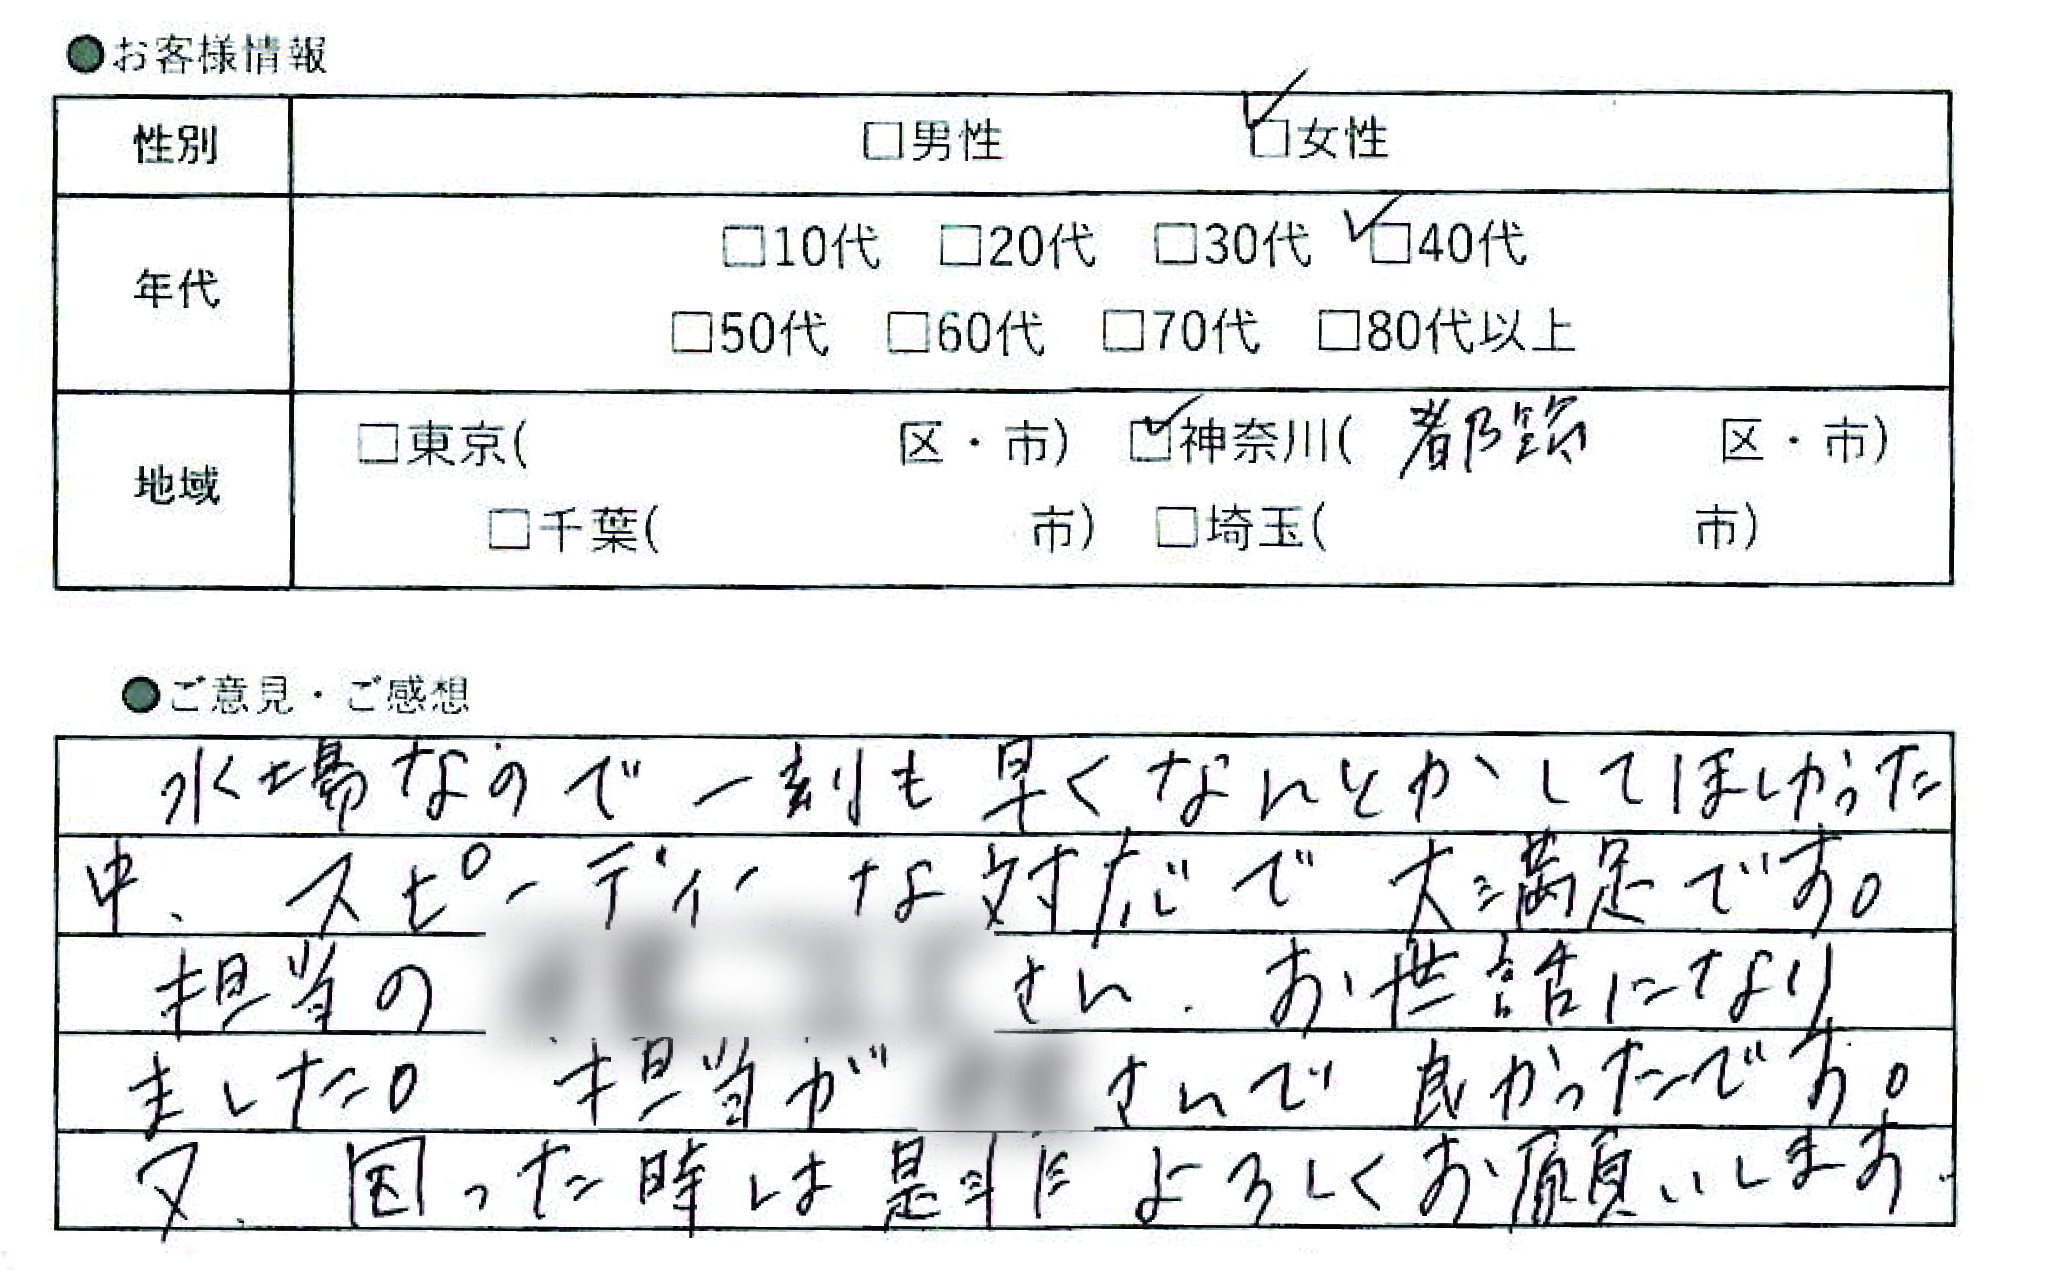 ●お客様情報
性別 □男性 ☑女性
年代 □10代 □20代 □30代 ☑40代
□50代 □60代 □70代 □80代以上
地域 □東京( 区・市) ☑神奈川( 都筑 区・市)
□千葉( 市) □埼玉( 市)
●ご意見・ご感想
水場なので一刻も早くなんとかしてほしかった
中、スピーディーな対応で大満足です。
担当の さん、お世話になり
ました。担当が さんで良かったです。
又、困った時は是非よろしくお願いします。